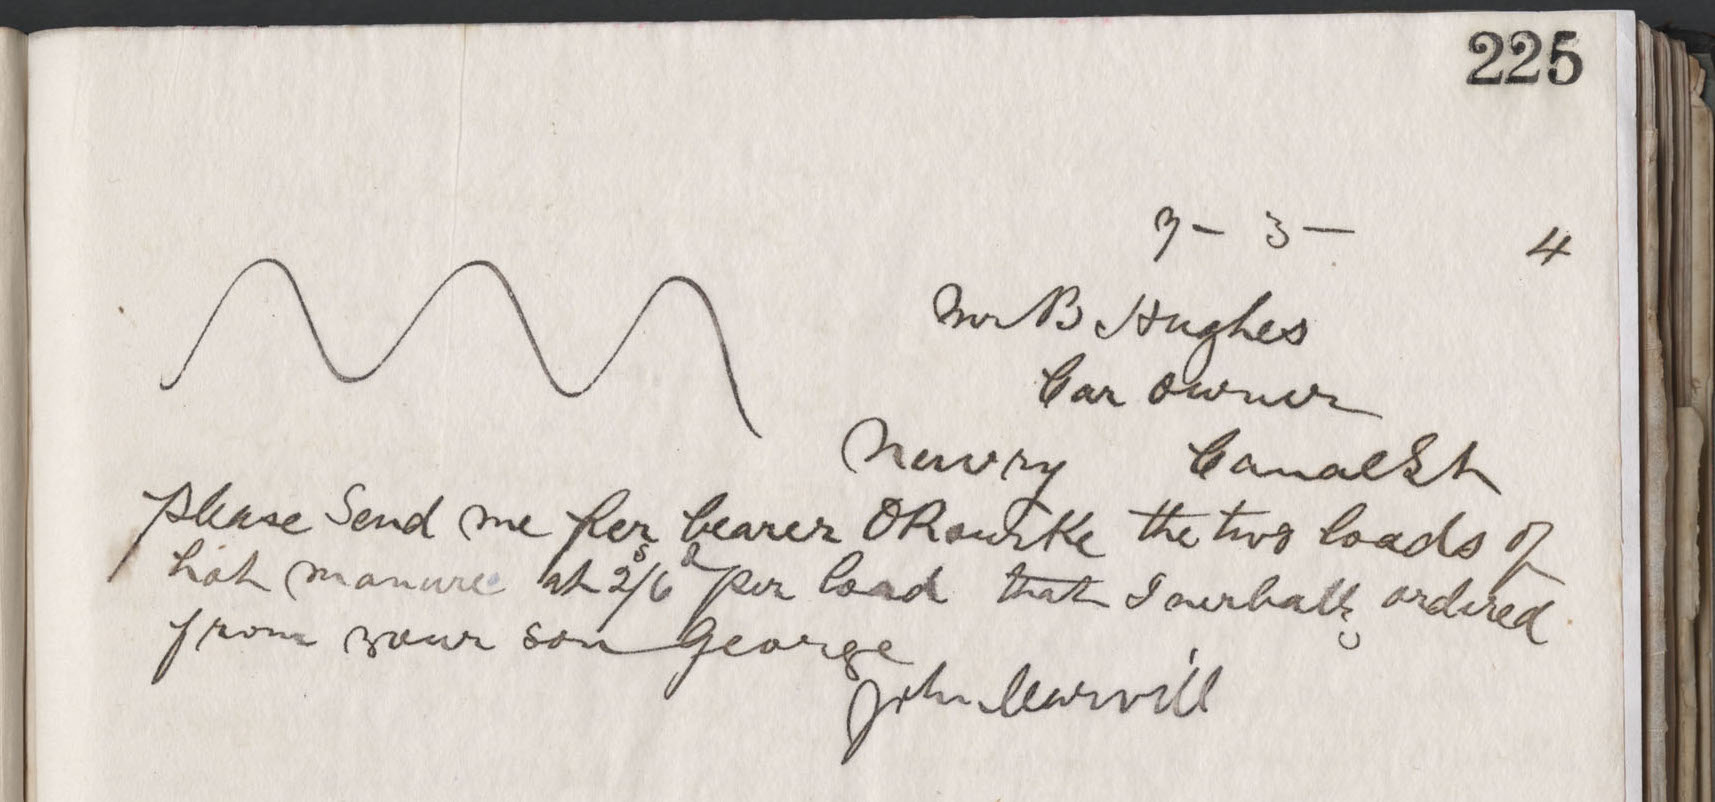 225
7 - 3 - 4
Mr B Hughes
Car owner
Newry Canal St
please Send me per bearer O Rourke the two loads of
hot manure at 2s/6d per load that I verbally ordired
from your son George
John